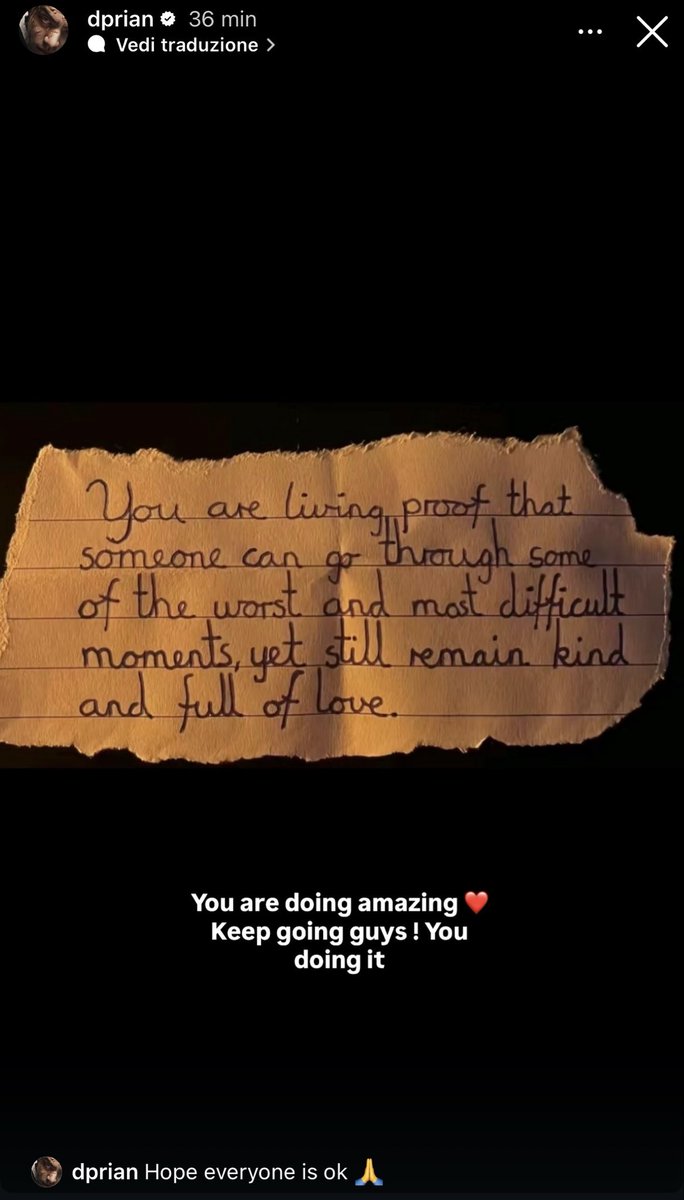 dprian 36 min
Vedi traduzione
You are living proof that
someone can go through some
of the worst and most difficult
moments, yet still remain kind
and full of love.
You are doing amazing ❤️
Keep going guys ! You
doing it
dprian Hope everyone is ok 🙏